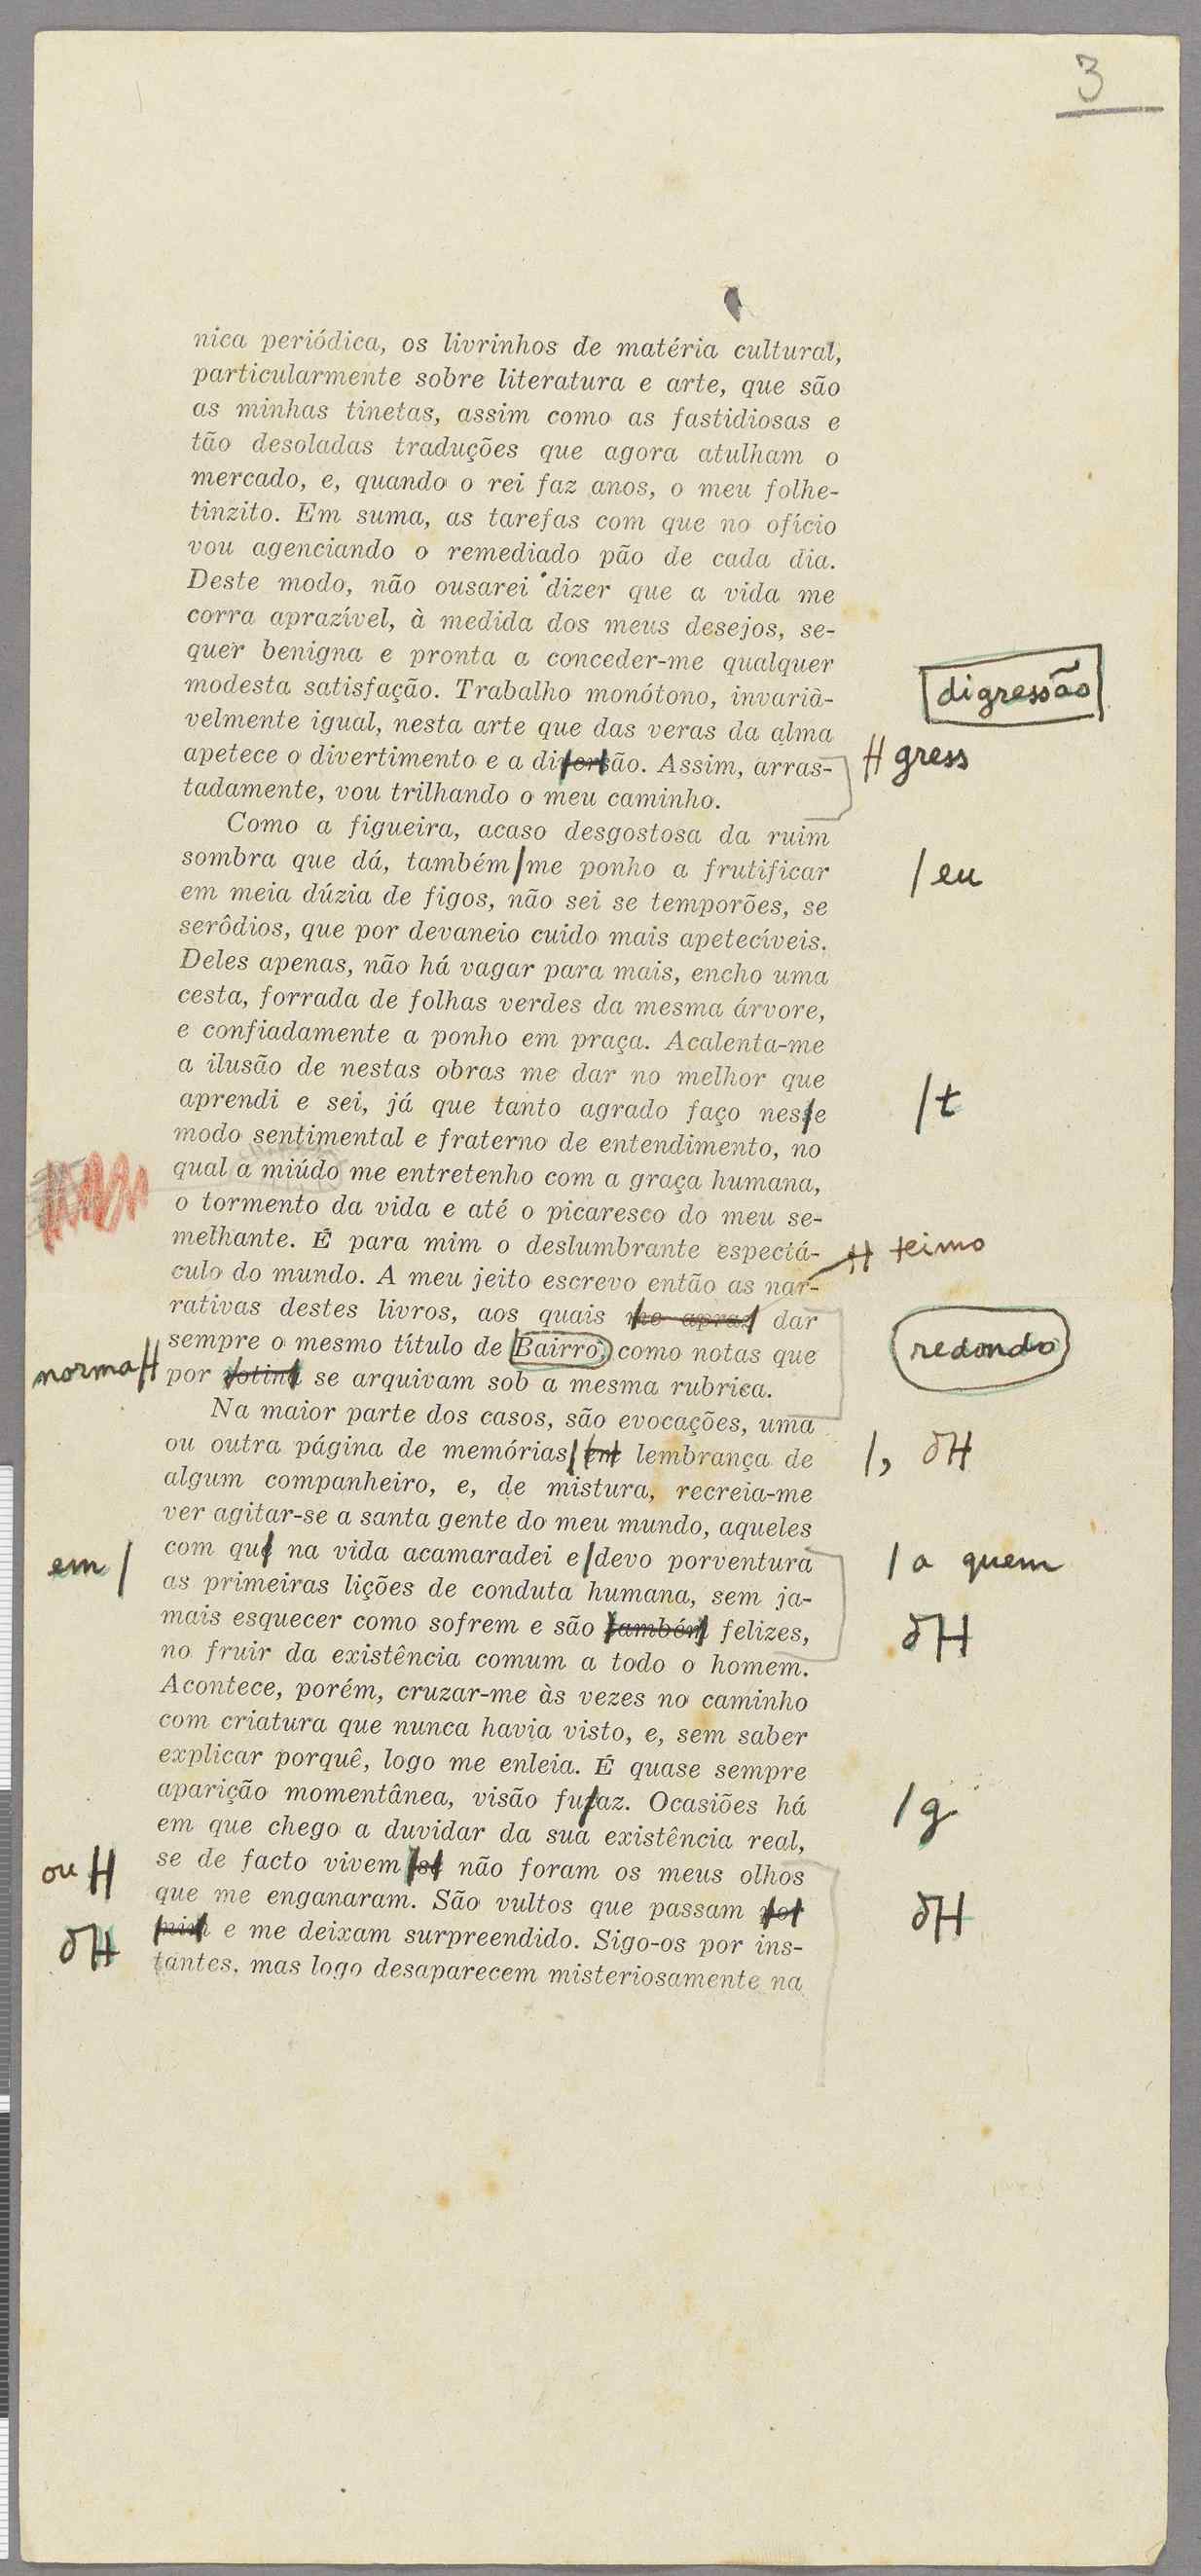 3
nica periódica, os livrinhos de matéria cultural,
particularmente sobre literatura e arte, que são
as minhas tinetas, assim como as fastidiosas e
tão desoladas traduções que agora atulham o
mercado, e, quando o rei faz anos, o meu folhe-
tinzito. Em suma, as tarefas com que no ofício
vou agenciando o remediado pão de cada dia.
Deste modo, não ousarei dizer que a vida me
corra aprazível, à medida dos meus desejos, se-
quer benigna e pronta a conceder-me qualquer
modesta satisfação. Trabalho monótono, invarià-
digressão
velmente igual, nesta arte que das veras da alma
apetece o divertimento e a diversão. Assim, arras- gress
tadamente, vou trilhando o meu caminho.
Como a figueira, acaso desgostosa da ruim
sombra que dá, também/me ponho a frutificar / eu
em meia dúzia de figos, não sei se temporões, se
serôdios, que por devaneio cuido mais apetecíveis.
Deles apenas, não há vagar para mais, encho uma
cesta, forrada de folhas verdes da mesma árvore,
e confiadamente a ponho em praça. Acalenta-me
a ilusão de nestas obras me dar no melhor que
aprendi e sei, já que tanto agrado faço nesse / t
modo sentimental e fraterno de entendimento, no
qual a miúdo me entretenho com a graça humana,
o tormento da vida e até o picaresco do meu se-
melhante. É para mim o deslumbrante espectá- teimo
culo do mundo. A meu jeito escrevo então as nar-
rativas destes livros, aos quais me apraz dar
sempre o mesmo título de Bairro, como notas que redondo
norma por rotina se arquivam sob a mesma rubrica.
Na maior parte dos casos, são evocações, uma
ou outra página de memórias/ em lembrança de /,
algum companheiro, e, de mistura, recreia-me
ver agitar-se a santa gente do meu mundo, aqueles
em / com que na vida acamaradei e/devo porventura / a quem
as primeiras lições de conduta humana, sem ja-
mais esquecer como sofrem e são também felizes,
no fruir da existência comum a todo o homem.
Acontece, porém, cruzar-me às vezes no caminho
com criatura que nunca havia visto, e, sem saber
explicar porquê, logo me enleia. É quase sempre
aparição momentânea, visão fu/az. Ocasiões há / g
em que chego a duvidar da sua existência real,
ou se de facto vivem se não foram os meus olhos
que me enganaram. São vultos que passam por
mim e me deixam surpreendido. Sigo-os por ins-
tantes, mas logo desaparecem misteriosamente na